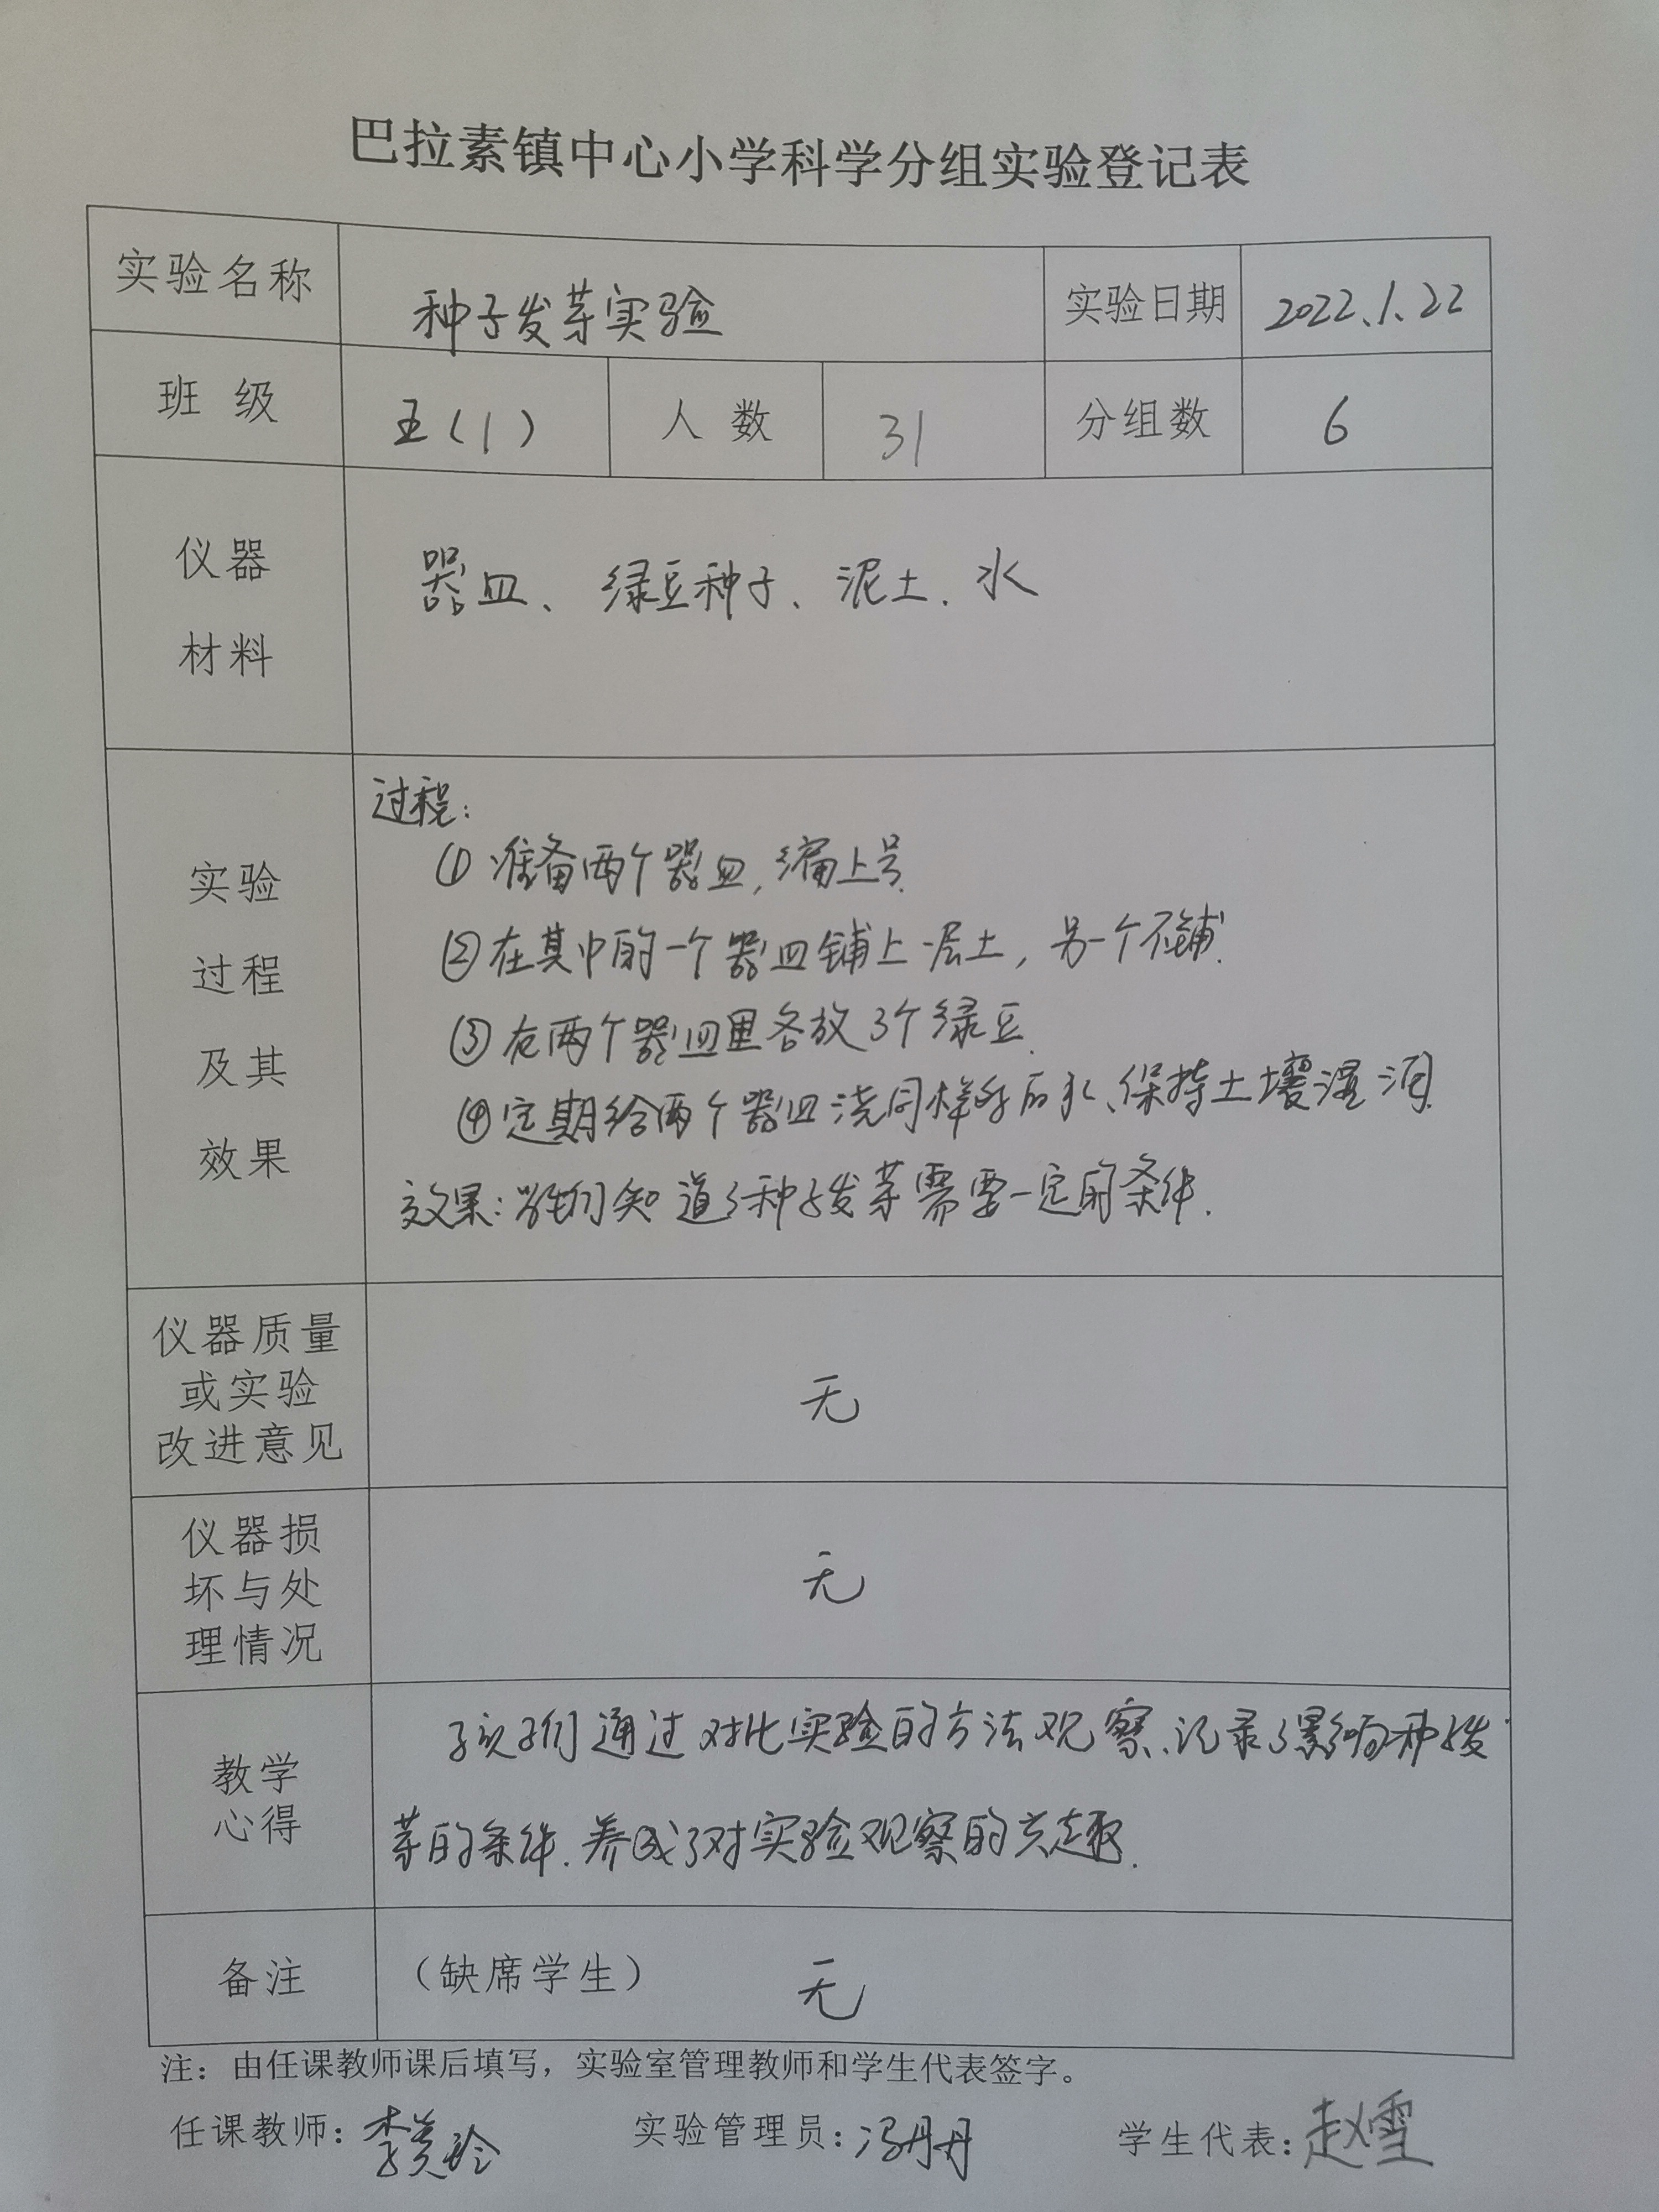 巴拉素镇中心小学科学分组实验登记表
实验名称 种子发芽实验 实验日期 2022.1.22
班 级 五(1) 人 数 31 分组数 6
仪器
材料
器皿、绿豆种子、泥土、水
实验
过程
及其
效果
过程:
①准备两个器皿,编上号.
②在其中的一个器皿铺上一层土,另一个不铺.
③在两个器皿里各放3个绿豆.
④定期给两个器皿浇同样的水、保持土壤湿润.
效果:学生们知道了种子发芽需要一定的条件.
仪器质量
或实验
改进意见
无
仪器损
坏与处
理情况
无
教学
心得
孩子们通过对比实验的方法观察、记录了影响种子发
芽的条件.养成了对实验观察的兴趣.
备注 (缺席学生) 无
注:由任课教师课后填写,实验室管理教师和学生代表签字。
任课教师:李美玲 实验管理员:冯丹丹 学生代表:赵雪